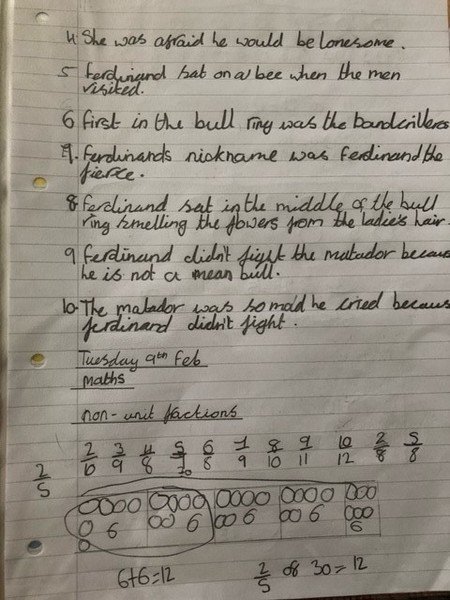 4 She was afraid he would be lonesome.
5 Ferdinand sat on a bee when the men
visited.
6 first in the bull ring was the banderilleros
7. Ferdinands nickname was Ferdinand the
fierce.
8 Ferdinand sat in the middle of the bull
ring smelling the flowers from the ladie's hair
9 Ferdinand didn't fight the matador becaus
he is not a mean bull.
10. The matador was so mad he cried becaus
ferdinand didn't fight.
Tuesday 9th Feb
maths
non-unit fractions
2/5 2/10 3/9 4/8 6/8 7/9 8/10 9/11 10/12 2/8 5/8
6 6 6 6 6
6+6=12 2/5 of 30=12